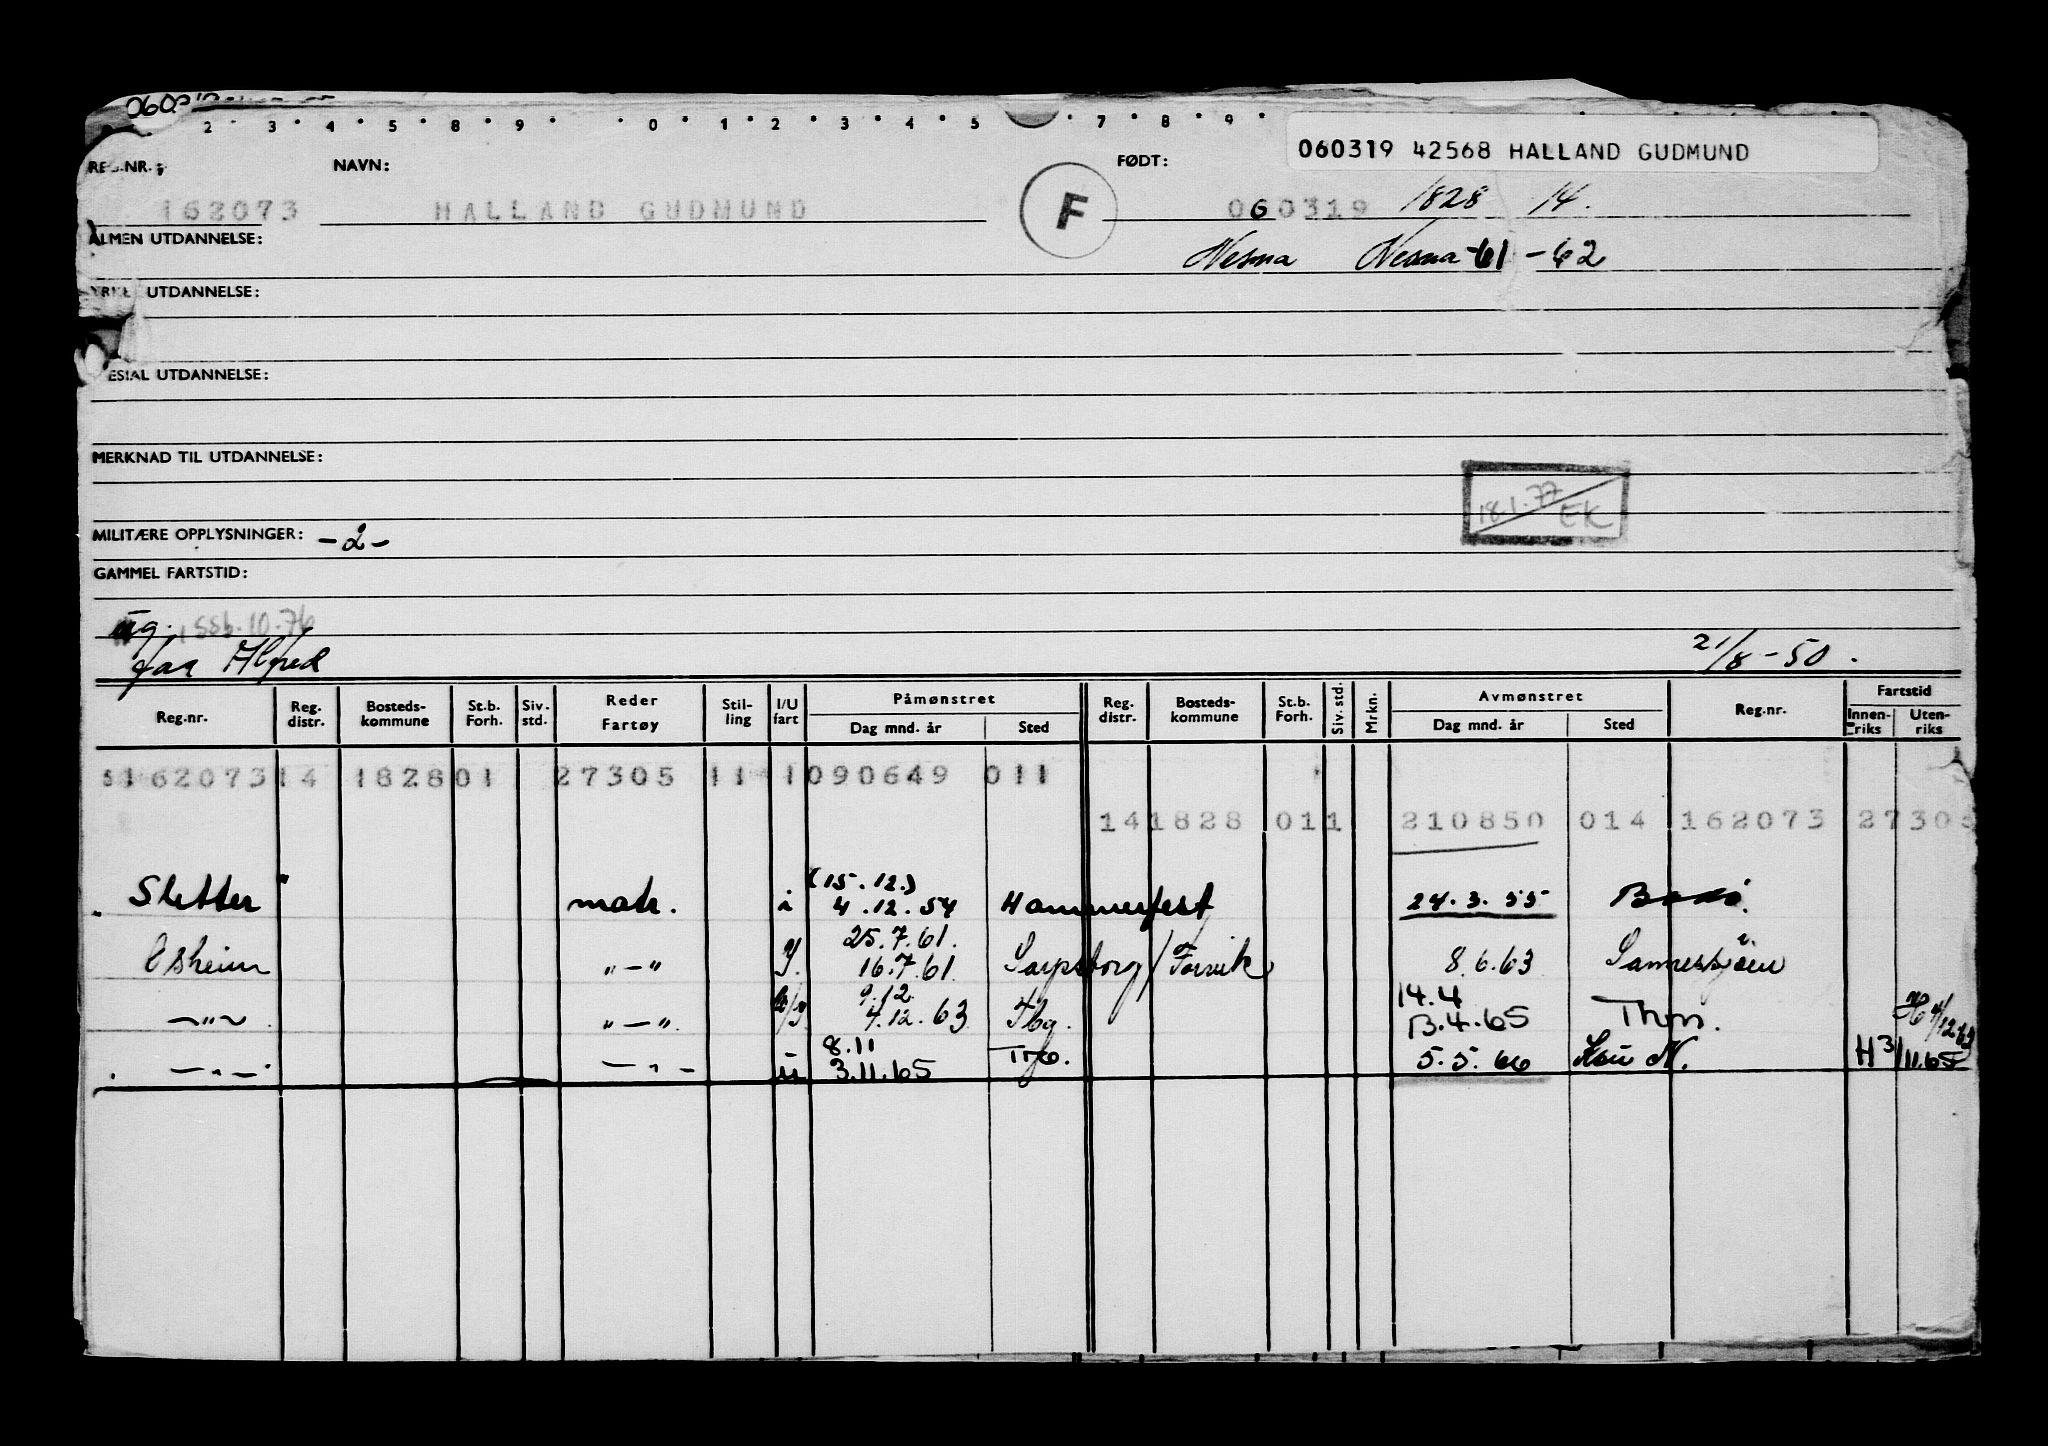 2 · 3 · 4 · 5 · 8 · 9 · · 0 · 1 · 2 · 3 · 4 · 5 · 7 · 8 · 9 ·
060319 42568 HALLAND GUDMUND
NAVN: FØDT:
162073 HALLAND GUDMUND F 060319 1828 14.
ALMEN UTDANNELSE: Nesna Nesna -61-62
UTDANNELSE:
ESIAL UTDANNELSE:
MERKNAD TIL UTDANNELSE:
18.1.77 EK
MILITÆRE OPPLYSNINGER: -2-
GAMMEL FARTSTID:
10.76
21/8-50.
Reg.nr. Reg. distr. Bosteds-kommune St.b. Forh. Siv. std. Reder Fartøy Stil-ling I/U fart Påmønstret Dag mnd. år Sted Reg. distr. Bosteds-kommune St.b. Forh. Siv. std. Mrkn. Avmønstret Dag mnd. år Sted Reg.nr. Fartstid Innen-riks Uten-riks
162073 14 1828 01 27305 11 1 090649 011
14 1828 01 1 210850 014 162073 27305
Sletter " matr. i (15.12.) 4.12.54 Hammerfest 24.3.55 Bodø
25.7.61.
" — " 16.7.61 Sarpsborg / Forvik 8.6.63
9.12. 14.4
— " — " — " 4.12.63 13.4.65
8.11
— " — — " — 3.11.65 5.5.66 H 3/11.65